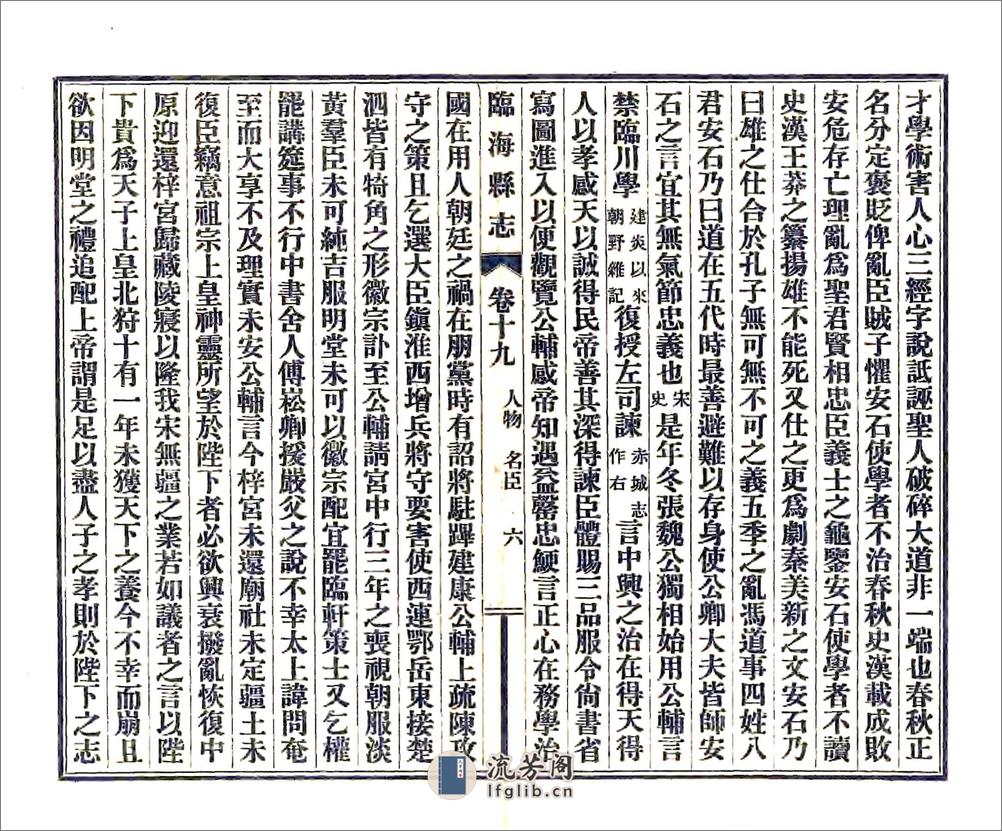 才學術害人心三經字說詆誣聖人破碎大道非一端也春秋正
名分定褒貶俾亂臣賊子懼安石使學者不治春秋史漢載成敗
安危存亡理亂爲聖君賢相忠臣義士之龜鑒安石使學者不讀
史漢王莽之纂揚雄不能死又仕之更爲劇秦美新之文安石乃
曰雄之仕合於孔子無可無不可之義五季之亂馮道事四姓八
君安石乃曰道在五代時最善避難以存身使公卿大夫皆師安
石之言宜其無氣節忠義也宋史是年冬張魏公獨相始用公輔言
禁臨川學建炎以來朝野雜記復授左司諫赤城志作右言中興之治在得天得
人以孝感天以誠得民帝善其深得諫臣體賜三品服令尙書省
寫圖進入以便觀覽公輔感帝知遇益罄忠鯁言正心在務學治
臨海縣志 卷十九 人物 名臣 六
國在用人朝廷之禍在朋黨時有詔將駐蹕建康公輔上疏陳攻
守之策且乞選大臣鎭淮西增兵將守要害使西連鄂岳東接楚
泗皆有犄角之形徽宗訃至公輔請宮中行三年之喪視朝服淡
黃羣臣未可純吉服明堂未可以徽宗配宜罷臨軒策士又乞權
罷講筵事不行中書舍人傅崧卿援嚴父之說不幸太上諱問奄
至而大享不及理實未安公輔言今梓宮未還廟社未定疆土未
復臣竊意祖宗上皇神靈所望於陛下者必欲興衰撥亂恢復中
原迎還梓宮歸藏陵寢以隆我宋無疆之業若如議者之言以陛
下貴爲天子上皇北狩十有一年未獲天下之養今不幸而崩且
欲因明堂之禮追配上帝謂是足以盡人子之孝則於陛下之志
流芳阁
lfglib.cn